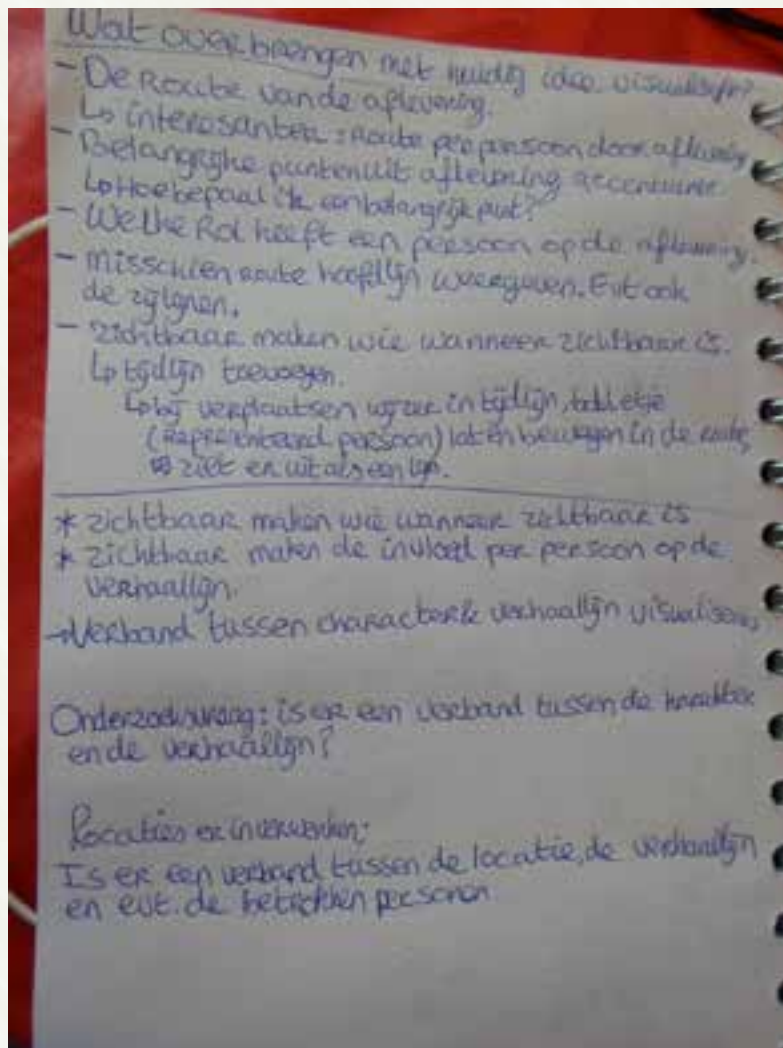 Wat overbrengen met huidig idee visualisatie?
- De Route van de aflevering.
↳ interessanter : Route per persoon door aflevering
- Belangrijke punten uit aflevering accentueren
↳ Hoe bepaal ik een belangrijk punt?
- Welke Rol heeft een persoon op de aflevering.
- misschien route hooflijn weergeven. Evt ook
de zijlijnen.
- zichtbaar maken wie wanneer zichtbaar is.
↳ tijdlijn toevoegen.
↳ bij verplaatsen wijzer in tijdlijn, bolletje
(representeerd persoon) laten bewegen in de route,
ziet er uit als een lijn.
* zichtbaar maken wie wanneer zichtbaar is
* zichtbaar maken de invloed per persoon op de
verhaallijn.
→ Verband tussen character & verhaallijn visualiseren
Onderzoeksvraag: is er een verband tussen de karakter
en de verhaallijn?
Locaties er in verwerken;
Is er een verband tussen de locatie, de verhaallijn
en evt. de betrokken personen